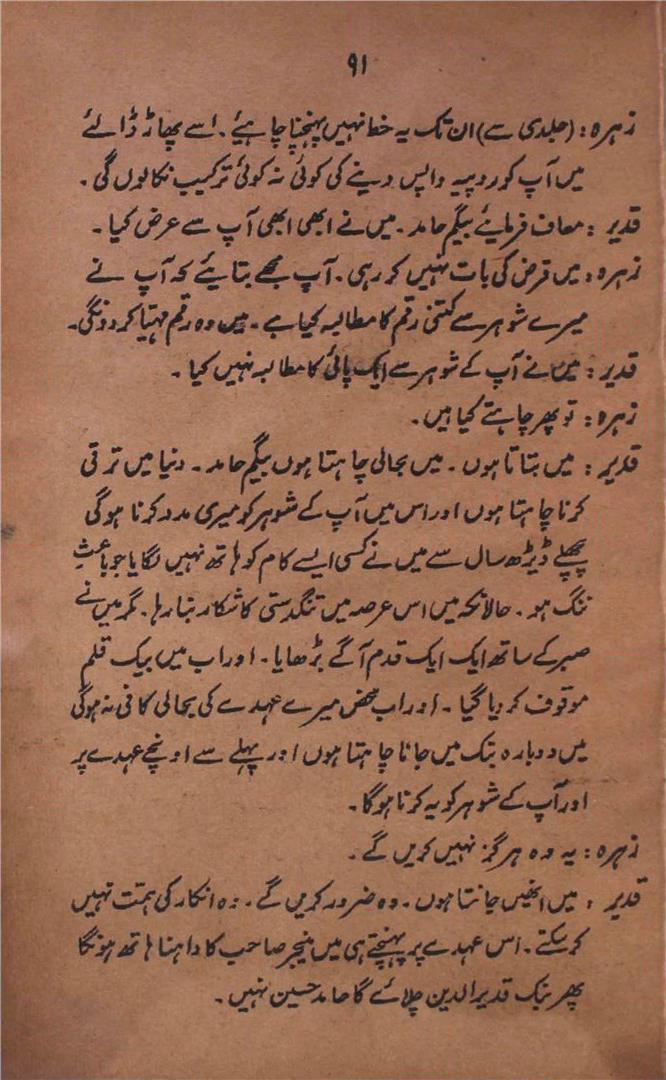 ۹۱
زہرہ : (جلدی سے) ان تک یہ خط نہیں پہنچنا چاہیئے ۔ اسے پھاڑ ڈالئے
میں آپ کو روپیہ واپس دینے کی کوئی نہ کوئی ترکیب نکالوں گی ۔
قدیر : معاف فرمایئے بیگم حامد ۔ میں نے ابھی ابھی آپ سے عرض کیا ۔
زہرہ : میں قرض کی بات نہیں کر رہی ۔ آپ مجھے بتایئے کہ آپ نے
میرے شوہر سے کتنی رقم کا مطالبہ کیا ہے ۔ میں وہ رقم مہیّا کر دونگی ۔
قدیر : میں نے آپ کے شوہر سے ایک پائی کا مطالبہ نہیں کیا ۔
زہرہ : تو پھر چاہتے کیا ہیں ۔
قدیر : میں بتاتا ہوں ۔ میں بحالی چاہتا ہوں بیگم حامد ۔ دنیا میں ترقی
کرنا چاہتا ہوں اور اس میں آپ کے شوہر کو میری مدد کرنا ہوگی
پچھلے ڈیڑھ سال سے میں نے کسی ایسے کام کو ہاتھ نہیں لگایا جو باعثِ
ننگ ہو ۔ حالانکہ میں اس عرصہ میں تنگدستی کا شکار بنا رہا ۔ مگر میں نے
صبر کے ساتھ ایک ایک قدم آگے بڑھایا ۔ اور اب میں بیک قلم
موقوف کر دیا گیا ۔ اور اب محض میرے عہدے کی بحالی کافی نہ ہوگی
میں دوبارہ بنک میں جانا چاہتا ہوں اور پہلے سے اونچے عہدے پر
اور آپ کے شوہر کو یہ کرنا ہوگا ۔
زہرہ : یہ وہ ہرگز نہیں کریں گے ۔
قدیر : میں انھیں جانتا ہوں ۔ وہ ضرور کریں گے ۔ وہ انکار کی ہمّت نہیں
کر سکتے ۔ اس عہدے پر پہنچتے ہی میں منیجر صاحب کا داہنا ہاتھ ہونگا
پھر بنک قدیر الدین چلائے گا حامد حسین نہیں ۔